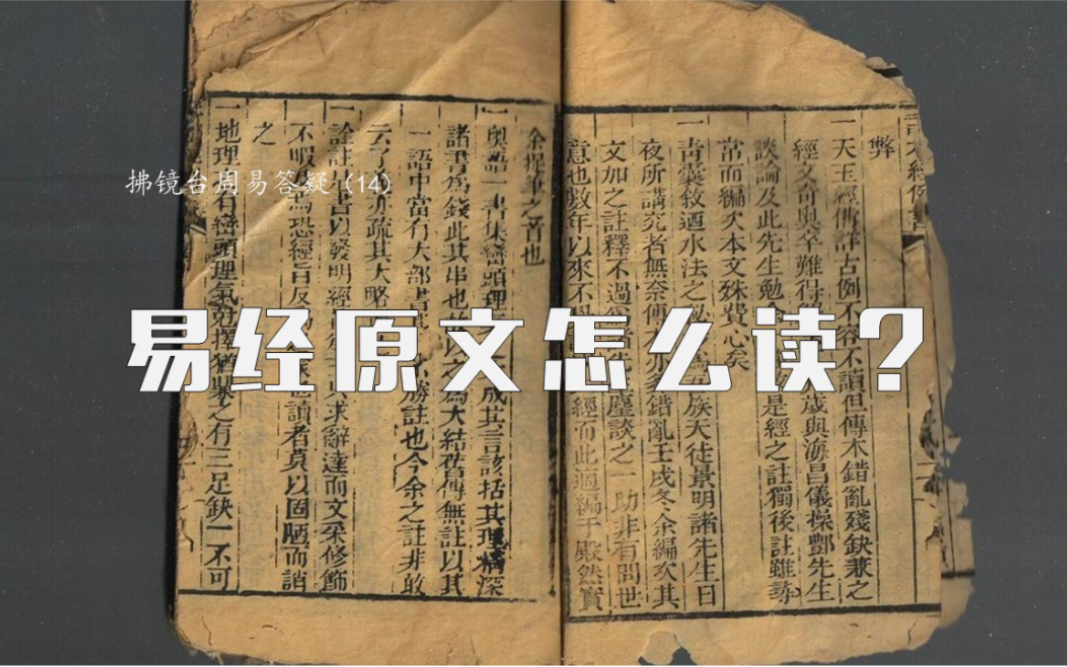 拂镜台周易答疑(14)
易经原文怎么读?
弊
一天玉經傳詳古例不容不讀但傳本錯亂殘缺兼之
經文奇奧卒難得歲與海昌儀操酆先生
談論及此先生勉余是經之註獨後註雖尋
常而編次本文殊費心矣
一青囊敘迴水法之族天徒景明諸先生日
夜所講究者無奈傳本亦多錯亂壬戌冬余編次其
文加之註釋不過塵談之一助非有問世
意也數年以來不經而此適編于殿然實
余提筆之首也
一奧語一書集巒頭理成其言該括其理精深
諸書為錢此其串也故以之為大結舊傳無註以其
一語中當有大部書勝註也今余之註非敢
云了亦疏其大略
一詮註書以發明經求辭達而文采修飾
不暇及焉恐經旨反也讀者真以固陋而誚
之
一地理有巒頭理氣尅擇猶鼎之有三足缺一不可